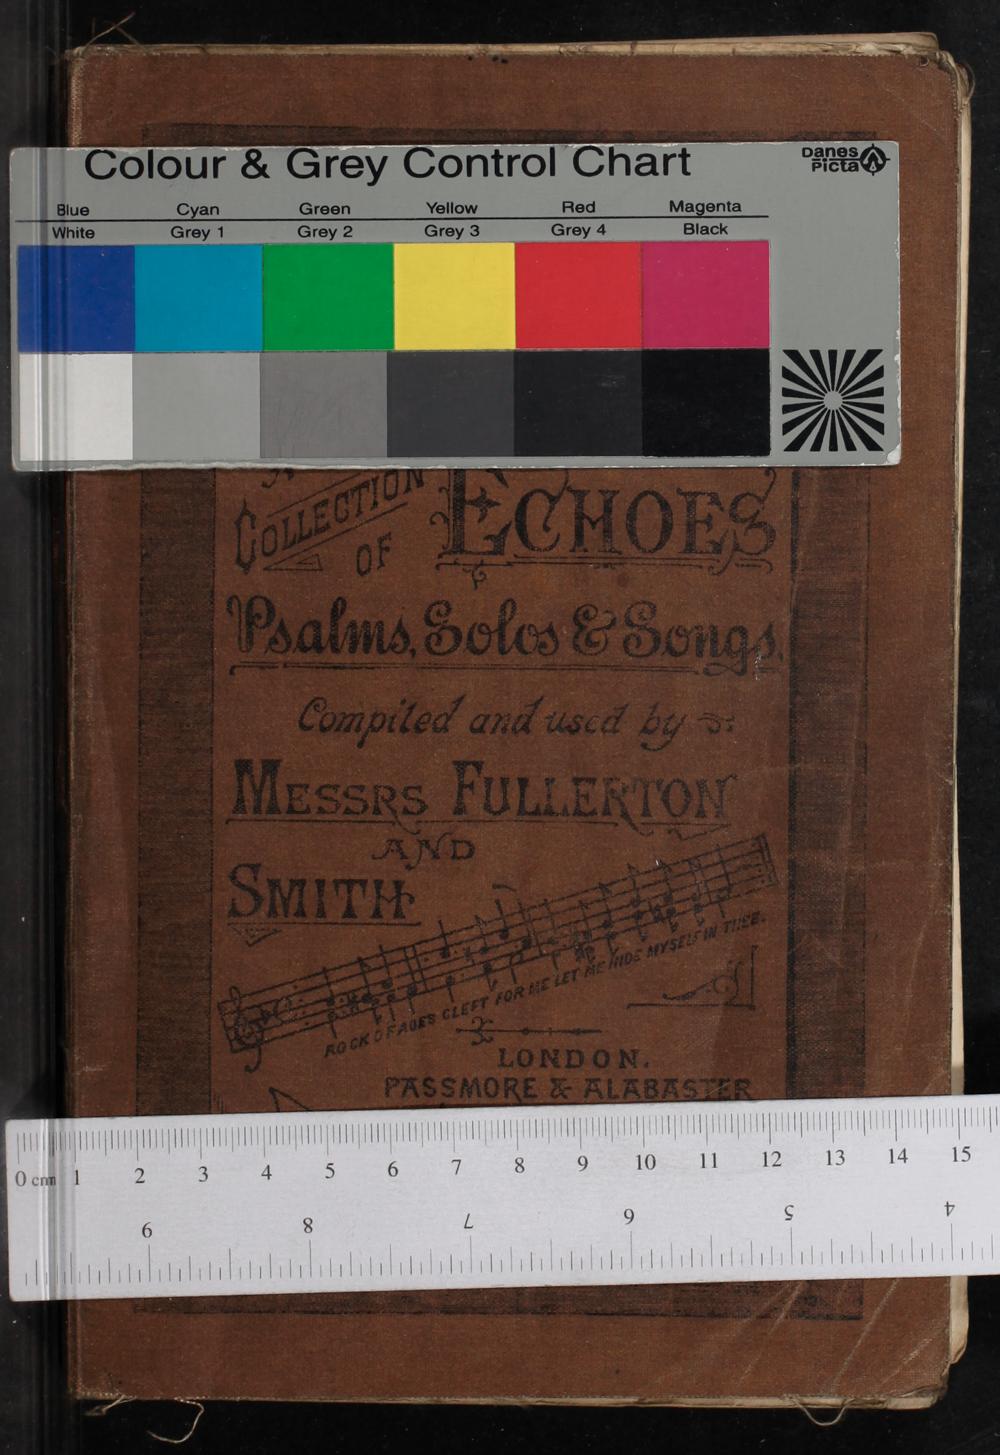 Colour & Grey Control Chart
Danes
Picta
Blue Cyan Green Yellow Red Magenta
White Grey 1 Grey 2 Grey 3 Grey 4 Black
COLLECTION
OF
ECHOES
Psalms, Solos & Songs.
Compiled and used by
MESSRS FULLERTON
AND
SMITH
ROCK OF AGES CLEFT FOR ME LET ME HIDE MYSELF IN THEE.
LONDON.
PASSMORE & ALABASTER
0 cm 1 2 3 4 5 6 7 8 9 10 11 12 13 14 15
9 8 7 6 5 4